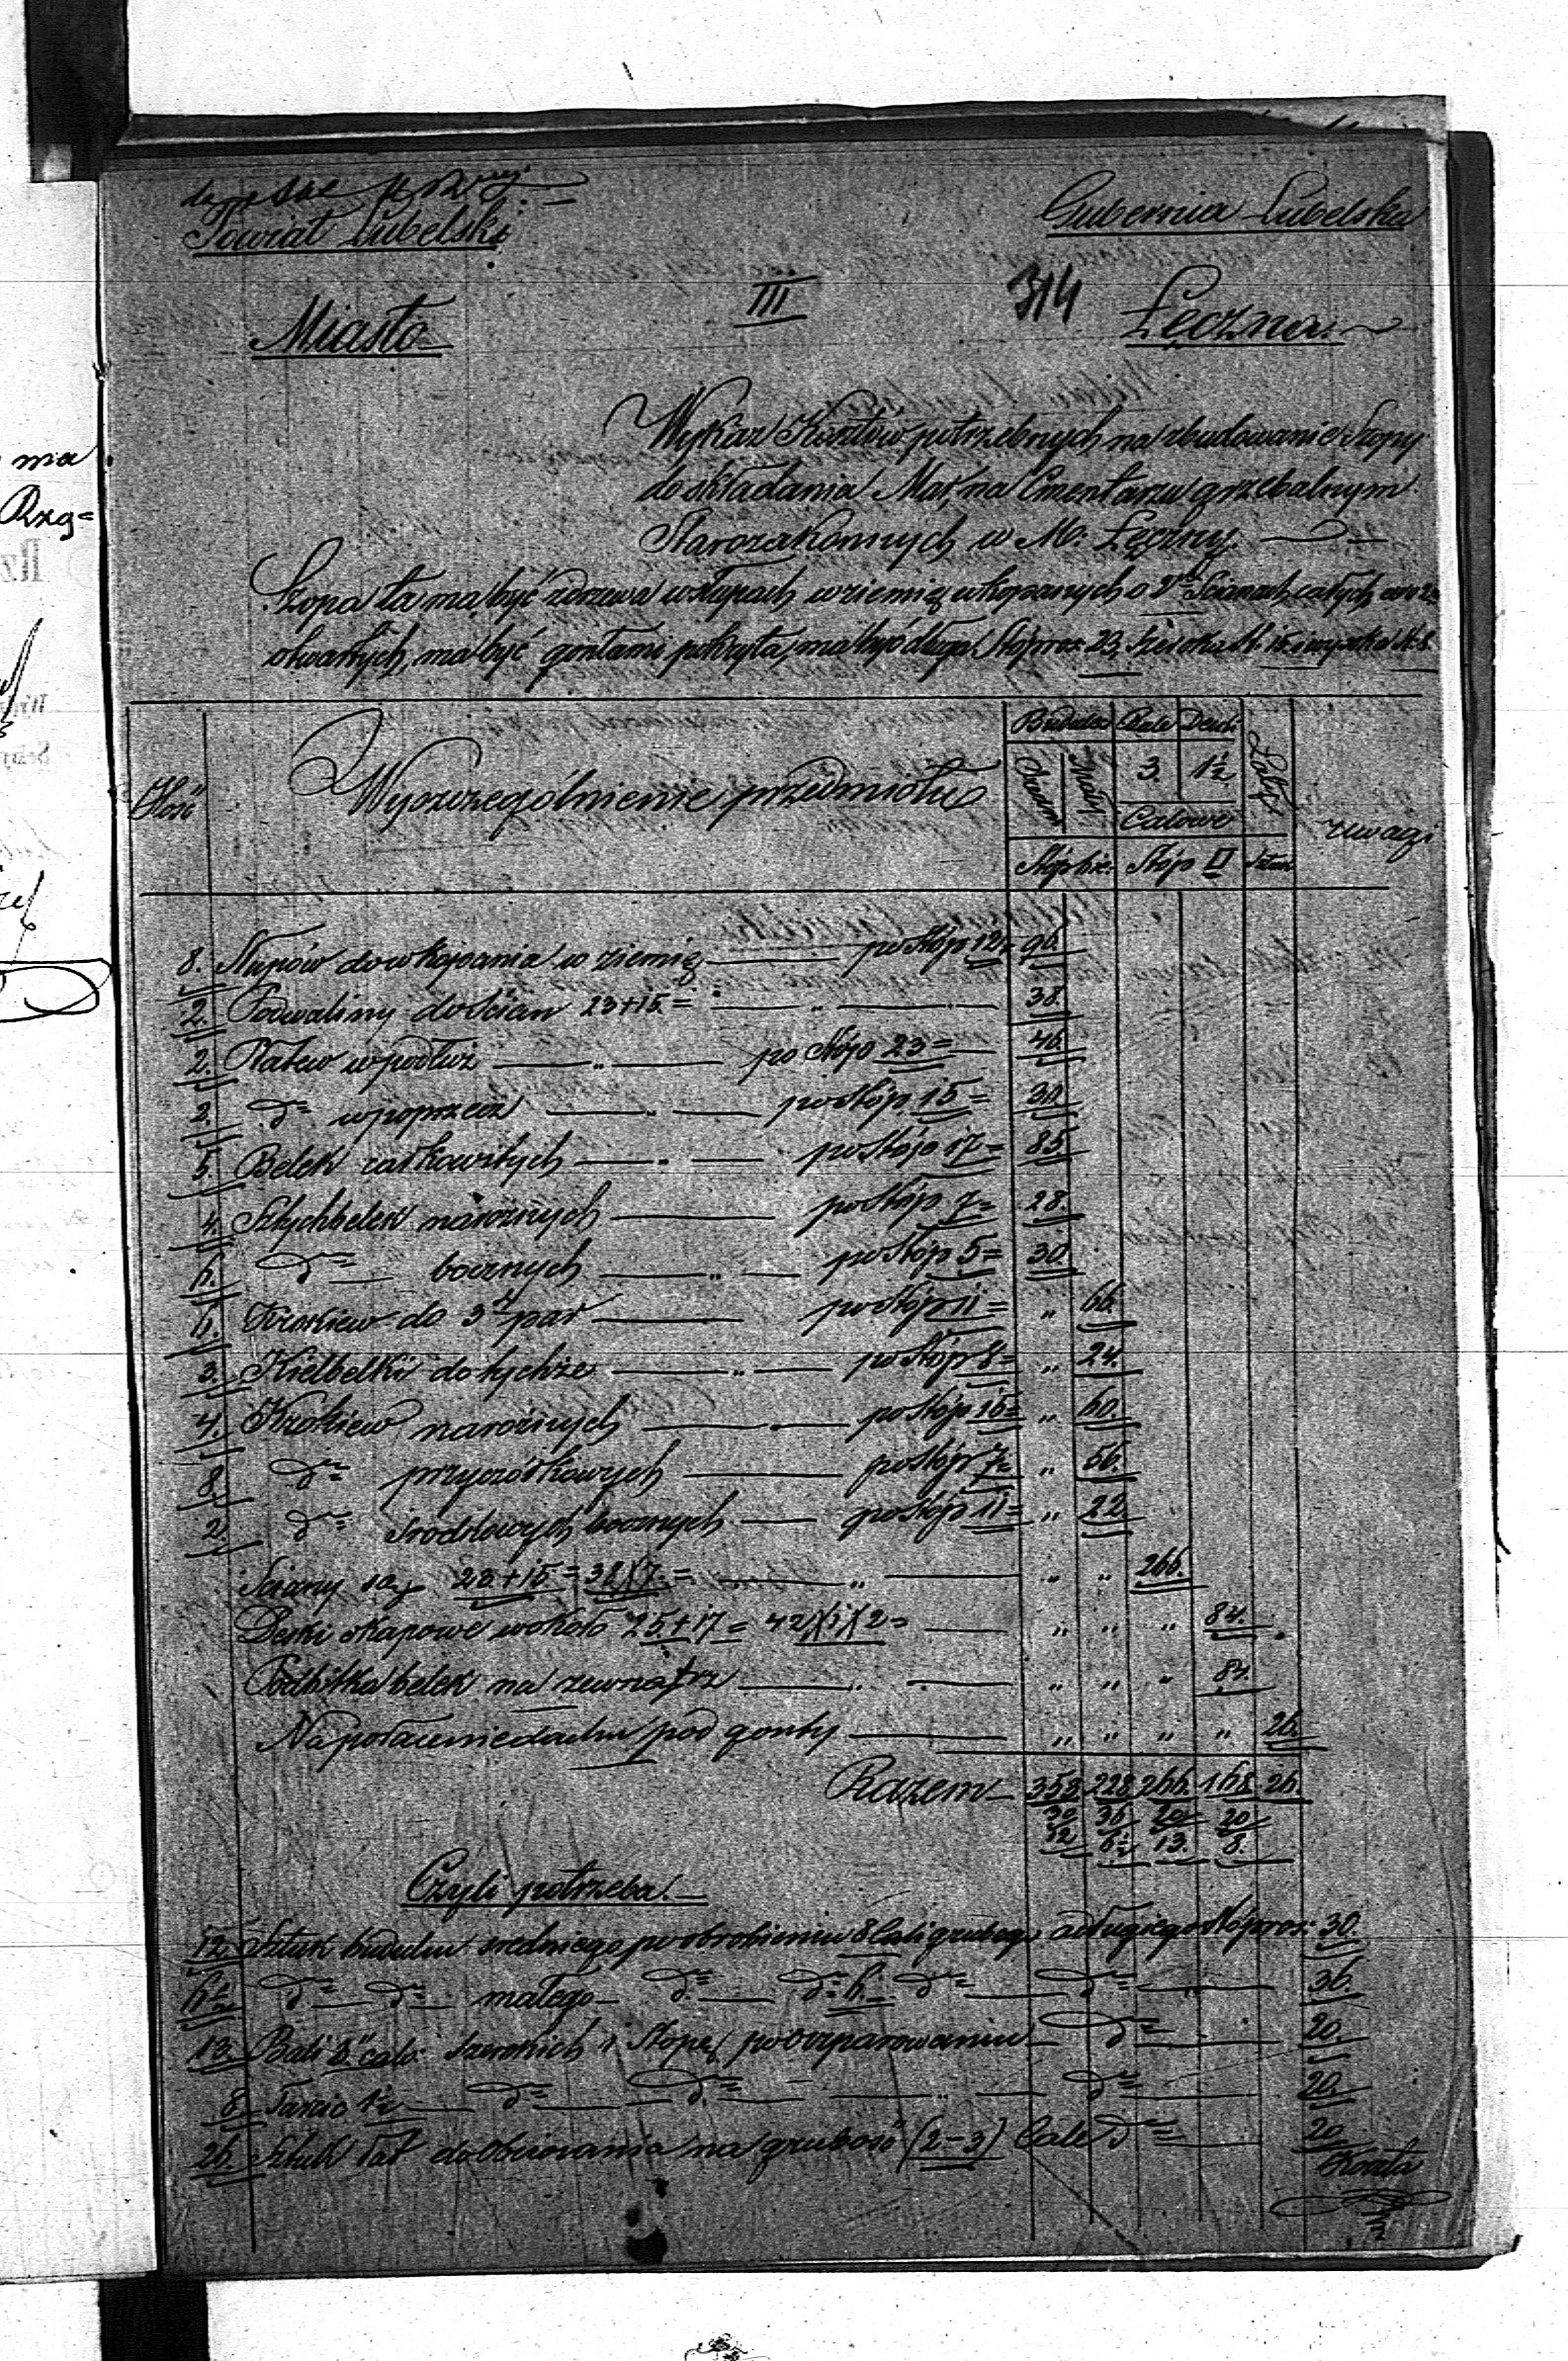 Powiat Lubelski
Gubernia Lubelska
Miasto
III
314
Łęczna.
Wykaz Kosztów potrzebnych na zbudowanie Szopy
do składania Mar, na Cmentarzu grzebalnym
Starozakonnych w M. Łęczny
Szopa ta ma być z drzewa w słupach w ziemię wkopanych o 2ch Ścianach całych a o 2ch
otwartych, ma być gontami pokryta, ma być długa Stóp 23, szeroka St. 15 i wysoka St. 8.
Ilość
Wyszczególnienie przedmiotu
Budulec
Bale
Desek
Łaty
uwagi
Średni
Mały
3.
1½
Calowe
Stóp bie:
Stóp □
Sztuk
8. Słupów do wkopania w ziemię po Stóp 12 = 96.
2. Podwaliny do Ścian 23+15 = „ 38.
2. Płatew wpodłuż „ po Stóp 23 = 46.
2. dto wpoprzecz „ po Stóp 15 = 30.
5. Belek całkowitych „ po Stóp 17 = 85.
4. Sztychbelek narożnych po Stóp 7 = 28.
6. dto bocznych „ po Stóp 5 = 30.
6. Krokiew do 3ch par po Stóp 11 = „ 66.
3. Kielbelki do tychże „ po Stóp 8 = „ 24.
4. Krokiew narożnych „ po Stóp 15 = „ 60.
8. dto przyczółkowych po Stóp 7 = „ 56.
2. dto środkowych bocznych po Stóp 11 = „ 22.
Ściany są 23+15 = 38)(7. = „ „ „ 266.
Deski okapowe wokoło 25+17 = 42)(1)(2 = „ „ „ 84.
Podbitka belek na zewnątrz „ „ „ 84.
Na połacenie dachu pod gonty „ „ „ „ 26.
Razem 358. 228. 266. 168. 26.
30 36 20 20
12 6½ 13. 8.
Czyli potrzeba.
12. Sztuk budulcu średniego po obrobieniu 8 Cali grubego a długiego Stóp 30.
6½ dto dto małego dto dto 6. dto dto 36.
13. Bali 3" calo: szerokich 1 Stopę po oszparowaniu dto 20.
8. Tarcic 1½ dto dto „ dto 20.
26. Sztuk łat do obciosania na grubość (2-3) Cale dto 20.
Koszta